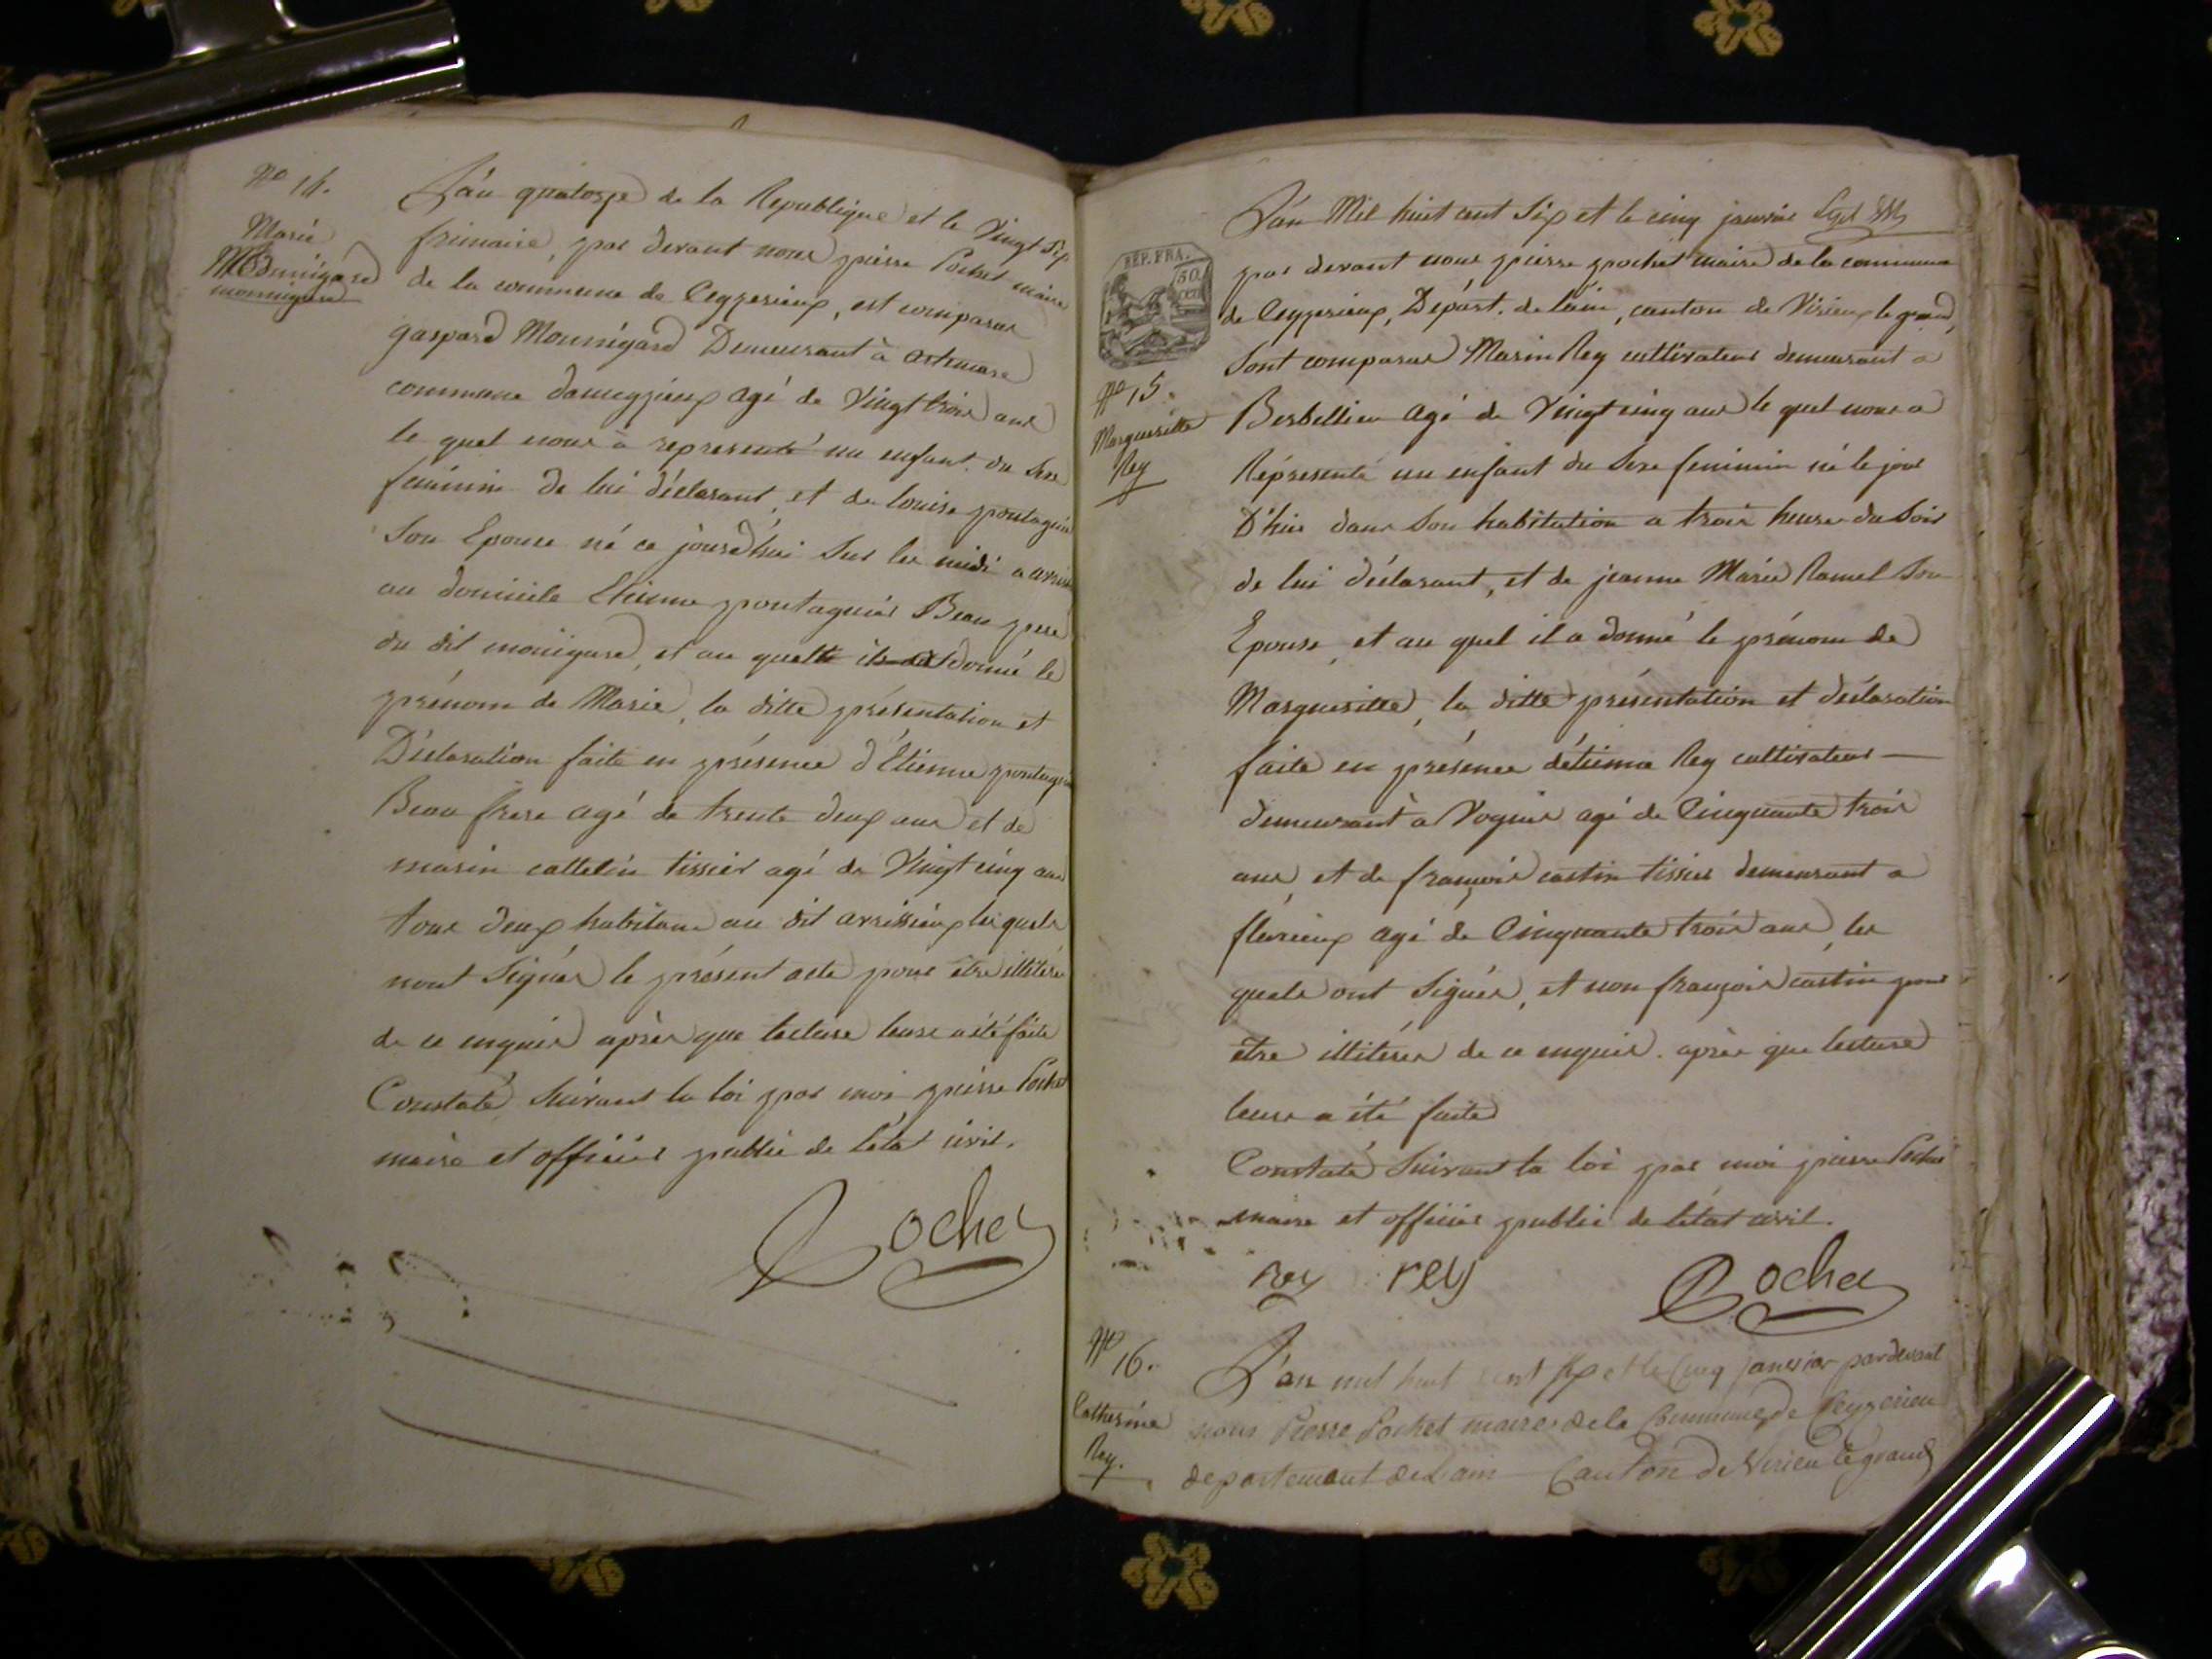 No 14.
Marie
Monnigard
monnigard
L'an quatorze de la Republique et le Vingt Six
frimaire, par devant nous pierre Pochet maire
de la commune de Ceyzerieux, est comparus
gaspard Monnigard Demeurant à artemare
commune dameyzieux agé de Vingt trois ans
le quel nous à representé un enfant du Sexe
féminin de lui déclarant, et de louise pontagnier
Son Epouse né ce jourdhui Sur les midi a
au domicile Etienne pontagnier Beau pere
du dit monigard, et au quel donné le
prénom de Marie, la ditte présentation et
Déclaration faite en présence d'Etienne pontagnier
Beau frere agé de trente deux ans et de
marin cattelin tissier agé de Vingt cinq ans
tous deux habitans au dit avrissieux les quels
nont Signés le présent acte pour être illiteré
de ce enquis après que lecture leurs a été faite
Constaté Suivant la loi par moi pierre Pochet
maire et officier public de létat civil.
Pochet
REP. FRA.
50
CEN
L'an Mil huit cent Six et le cinq janvier
par devant nous pierre pochet maire de la commune
de Ceyzerieux, Départ. de lain, canton de Virieux le grand,
Sont comparus Marin Rey cultivateur demeurant a
No 15.
Margueritte
Rey
Berbellieu agé de Vingt cinq ans le quel nous a
Réprésenté un enfant du Sexe feminin né le jour
D'hier dans Son habitation a trois heures du Soir
de lui déclarant, et de jeanne Marie Ramel Son
Epouse, et au quel il a donné le prénom de
Margueritte, la ditte présentation et déclaration
faite en présence détienne Rey cultivateur
demeurant à Vognier agé de Cinquante trois
ans, et de françois castin tissier demeurant a
flévieux agé de Cinquante trois ans, les
quels ont Signés, et non françois castin pour
etre illiterer de ce enquis. après que lecture
leurs a été faite
Constaté Suivant la loi par moi pierre Pochet
maire et officier public de létat civil.
rey rey Pochet
No 16.
Catherine
Rey.
L'an mil huit cent six et le Cinq janvier pardevant
nous Pierre Pochet maire de la Commune de Ceyzerieu
departement de Lain Canton de Virieu le grand